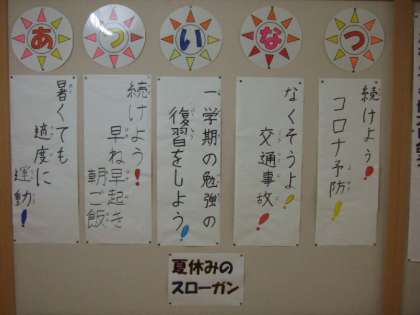 あ
つ
い
な
つ
暑くても
適度に
運動!
続けよう!
早ね早起き
朝ご飯
一学期の勉強の
復習をしよう!
なくそうよ!
交通事故!
続けよう!
コロナ予防!
夏休みの
スローガン